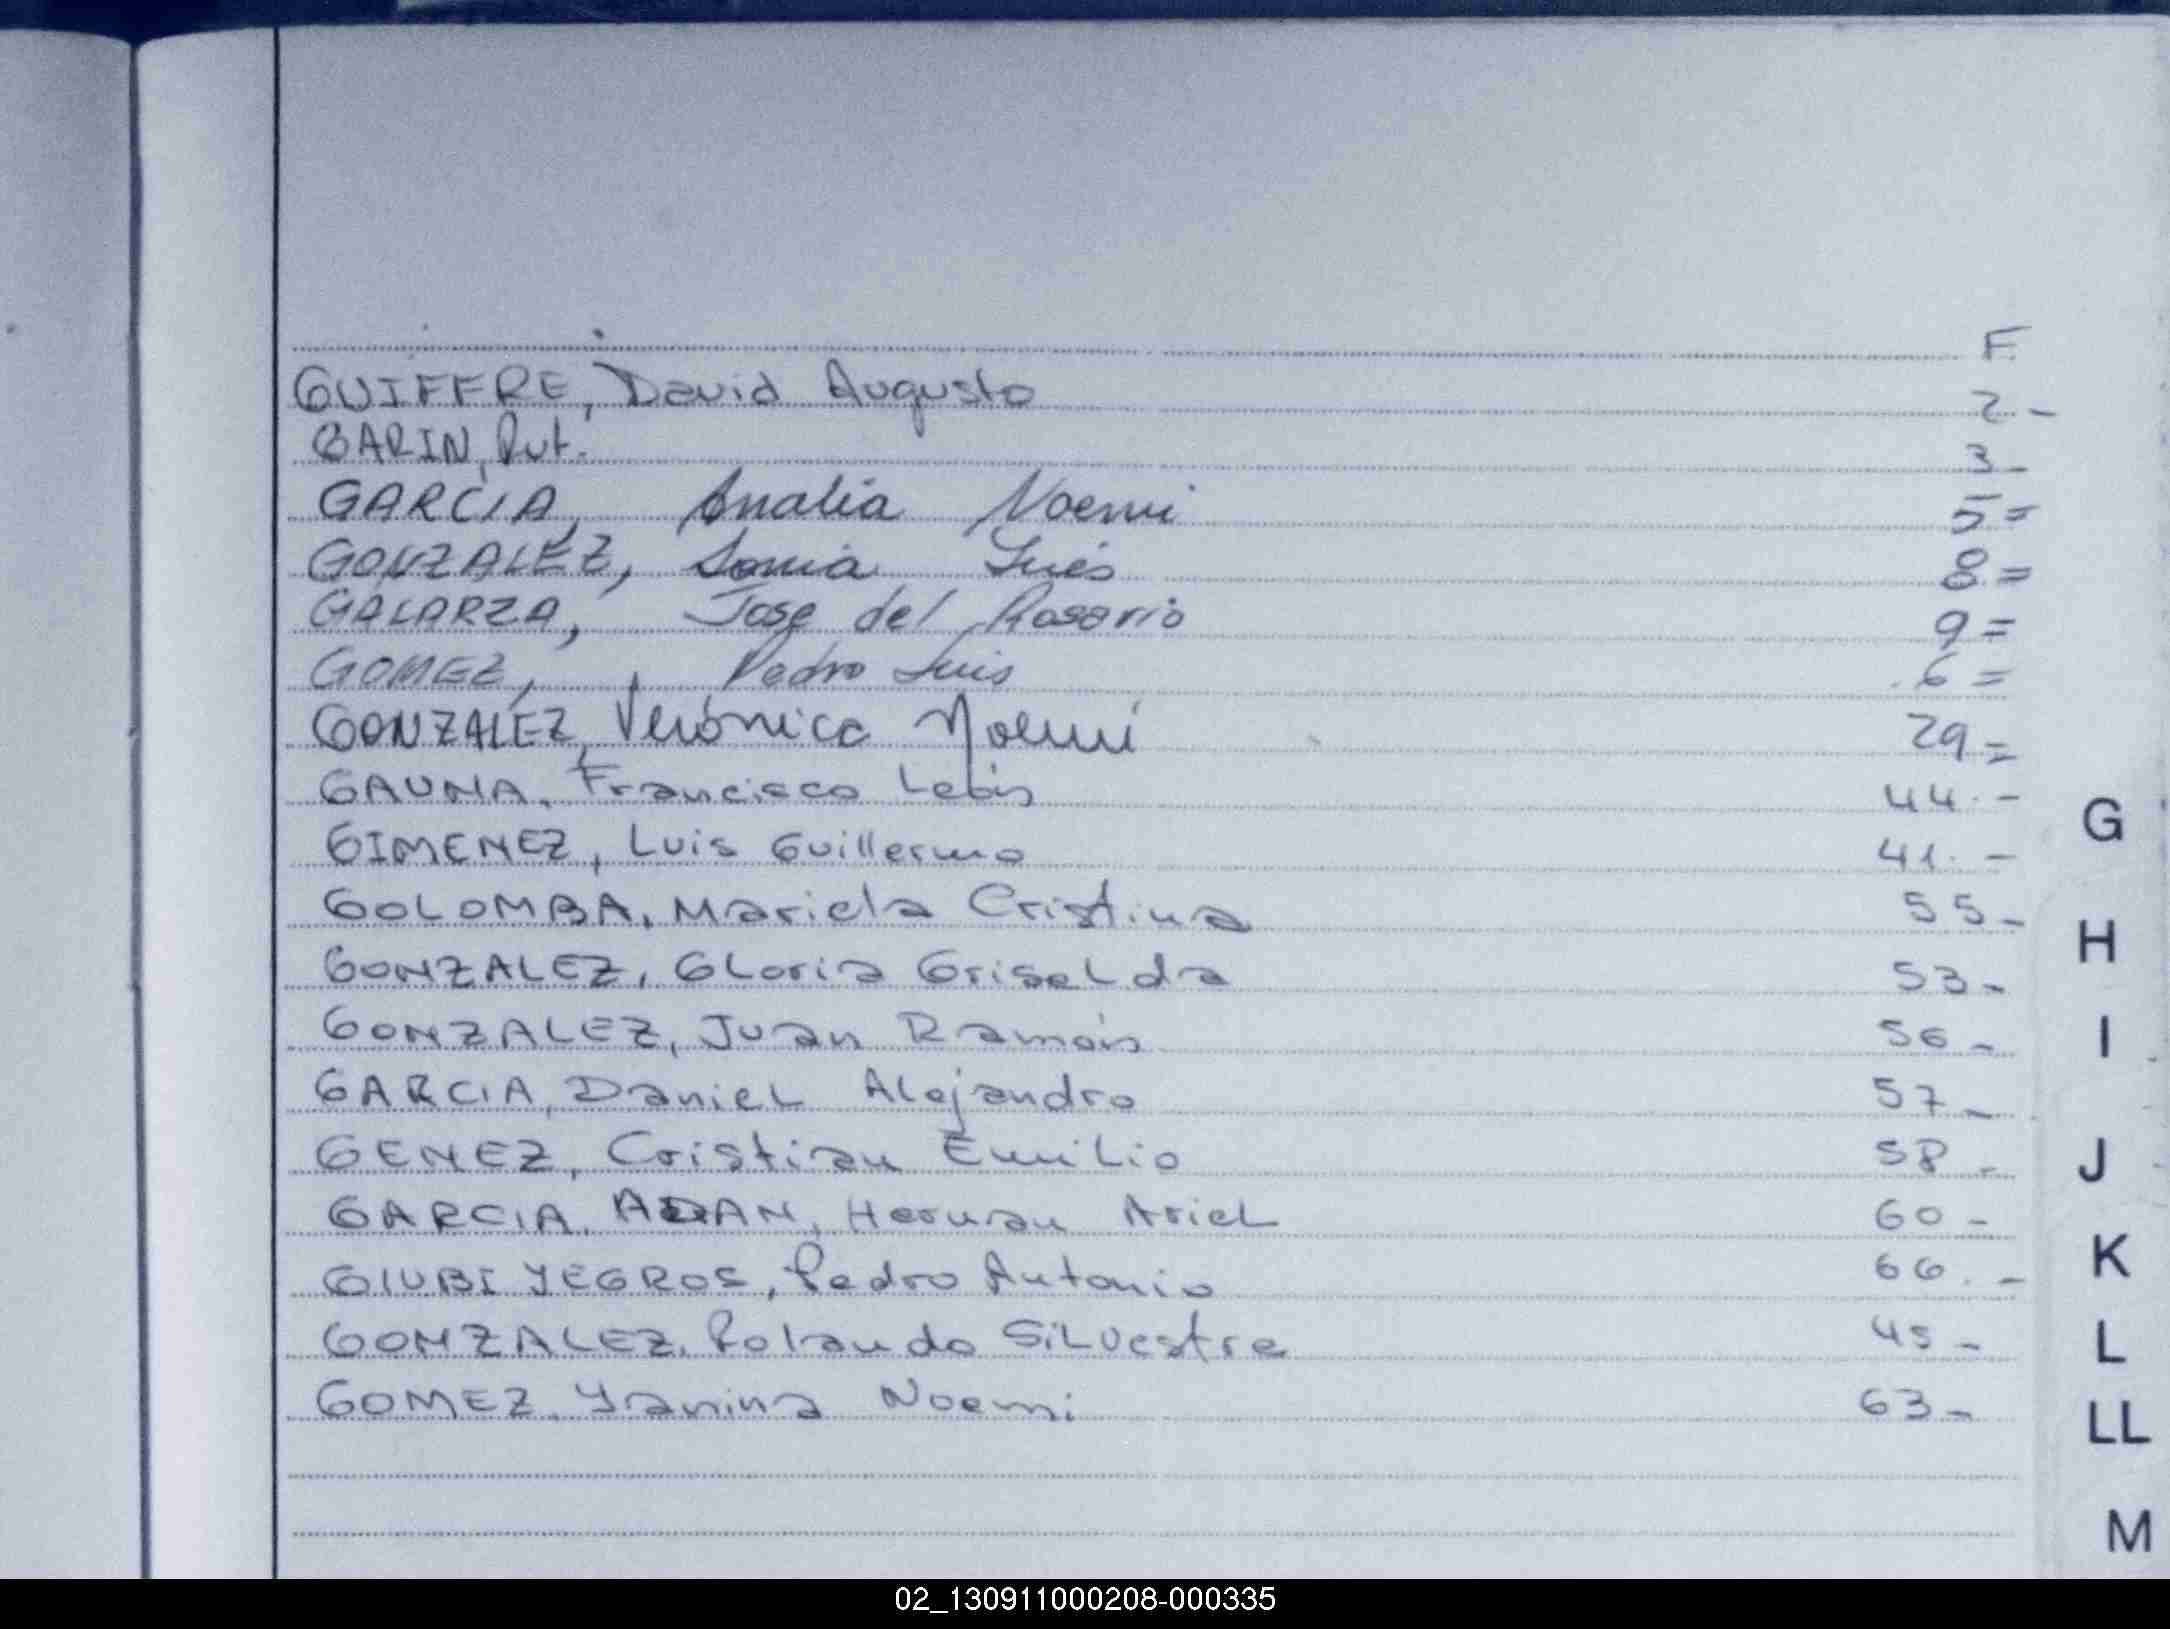 F.
GUIFFRE, David Augusto 2-
GARIN, Rut. 3-
GARCIA, Analia Noemi 5=
GONZALEZ, Sonia Inés 8=
GALARZA, Jose del Rosario 9=
GOMEZ, Pedro Luis 6=
GONZALEZ, Verónica Noemí 29=
GAUNA, Francisco 44.-
GIMENEZ, Luis Guillermo 41.-
GOLOMBA, Mariela Cristina 55-
GONZALEZ, GLoria GriseLda 53-
GONZALEZ, Juan Ramón 56-
GARCIA, DanieL Alejandro 57-
GENEZ, Cristian EmiLio 58-
GARCIA, ADAN, Hernan ArieL 60-
GIUBI YEGROS, Pedro Antonio 66.-
GONZALEZ, Rolando SiLvestre 45-
GOMEZ, Yanina Noemi 63-
G
H
I
J
K
L
LL
M
02_130911000208-000335